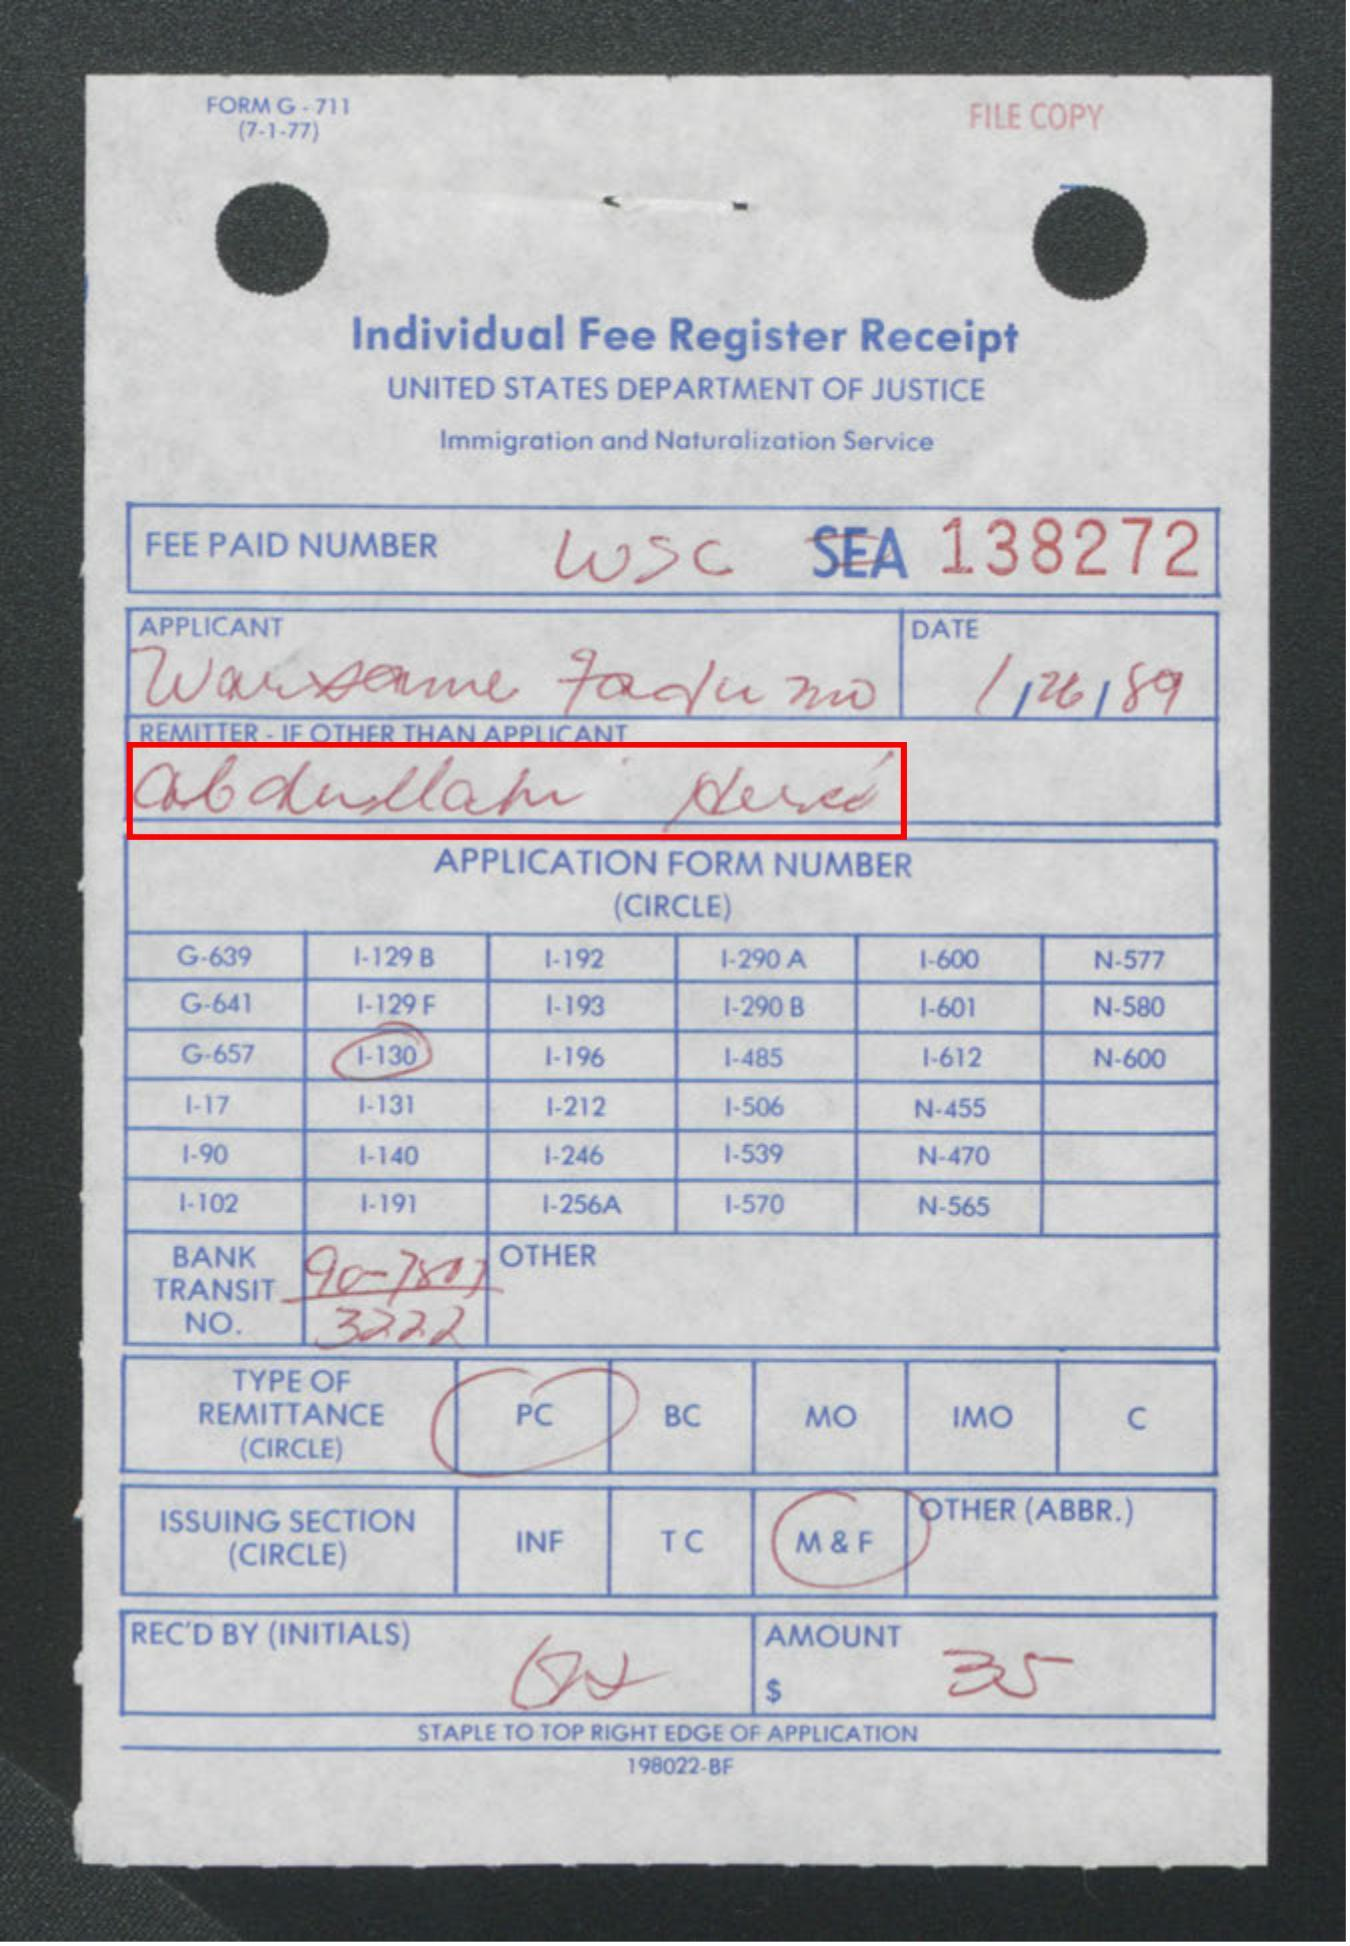 FORM G - 711
(7-1-77)
FILE COPY
Individual Fee Register Receipt
UNITED STATES DEPARTMENT OF JUSTICE
Immigration and Naturalization Service
FEE PAID NUMBER WSC SEA 138272
APPLICANT DATE
Warsame Faduma 1/26/89
REMITTER - IF OTHER THAN APPLICANT
Abdullahi
APPLICATION FORM NUMBER
(CIRCLE)
G-639 I-129 B I-192 I-290 A I-600 N-577
G-641 I-129 F I-193 I-290 B I-601 N-580
G-657 I-130 I-196 I-485 I-612 N-600
I-17 I-131 I-212 I-506 N-455
I-90 I-140 I-246 I-539 N-470
I-102 I-191 I-256A I-570 N-565
BANK TRANSIT NO. 90-7807 OTHER
3222
TYPE OF REMITTANCE (CIRCLE) PC BC MO IMO C
ISSUING SECTION (CIRCLE) INF T C M & F OTHER (ABBR.)
REC'D BY (INITIALS) AMOUNT
$ 35
STAPLE TO TOP RIGHT EDGE OF APPLICATION
198022-BF